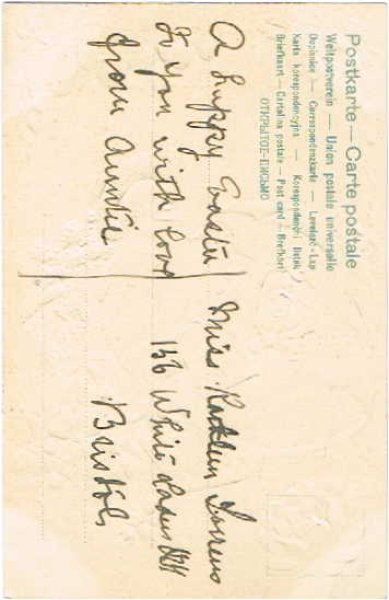 Postkarte — Carte postale
Weltpostverein — Union postale universelle
Dopisnice — Correspondenzkarte — Levelezö-Lap
Karta korespondencyjna — Korespondenčni listek
Briefkaart — Cartolina postale — Post card — Brefkort
ОТКРЫТОЕ ПИСЬМО
A happy Easter
to you with love
from Auntie
Miss
156 White Ladies Rd
Bristol